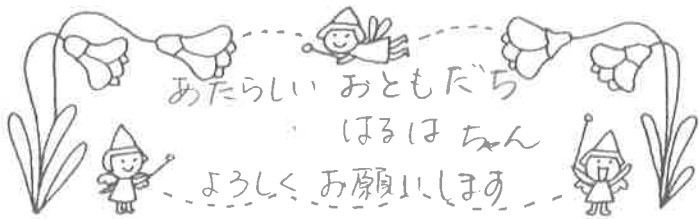 あたらしい おともだち
はるは ちゃん
よろしく お願いします